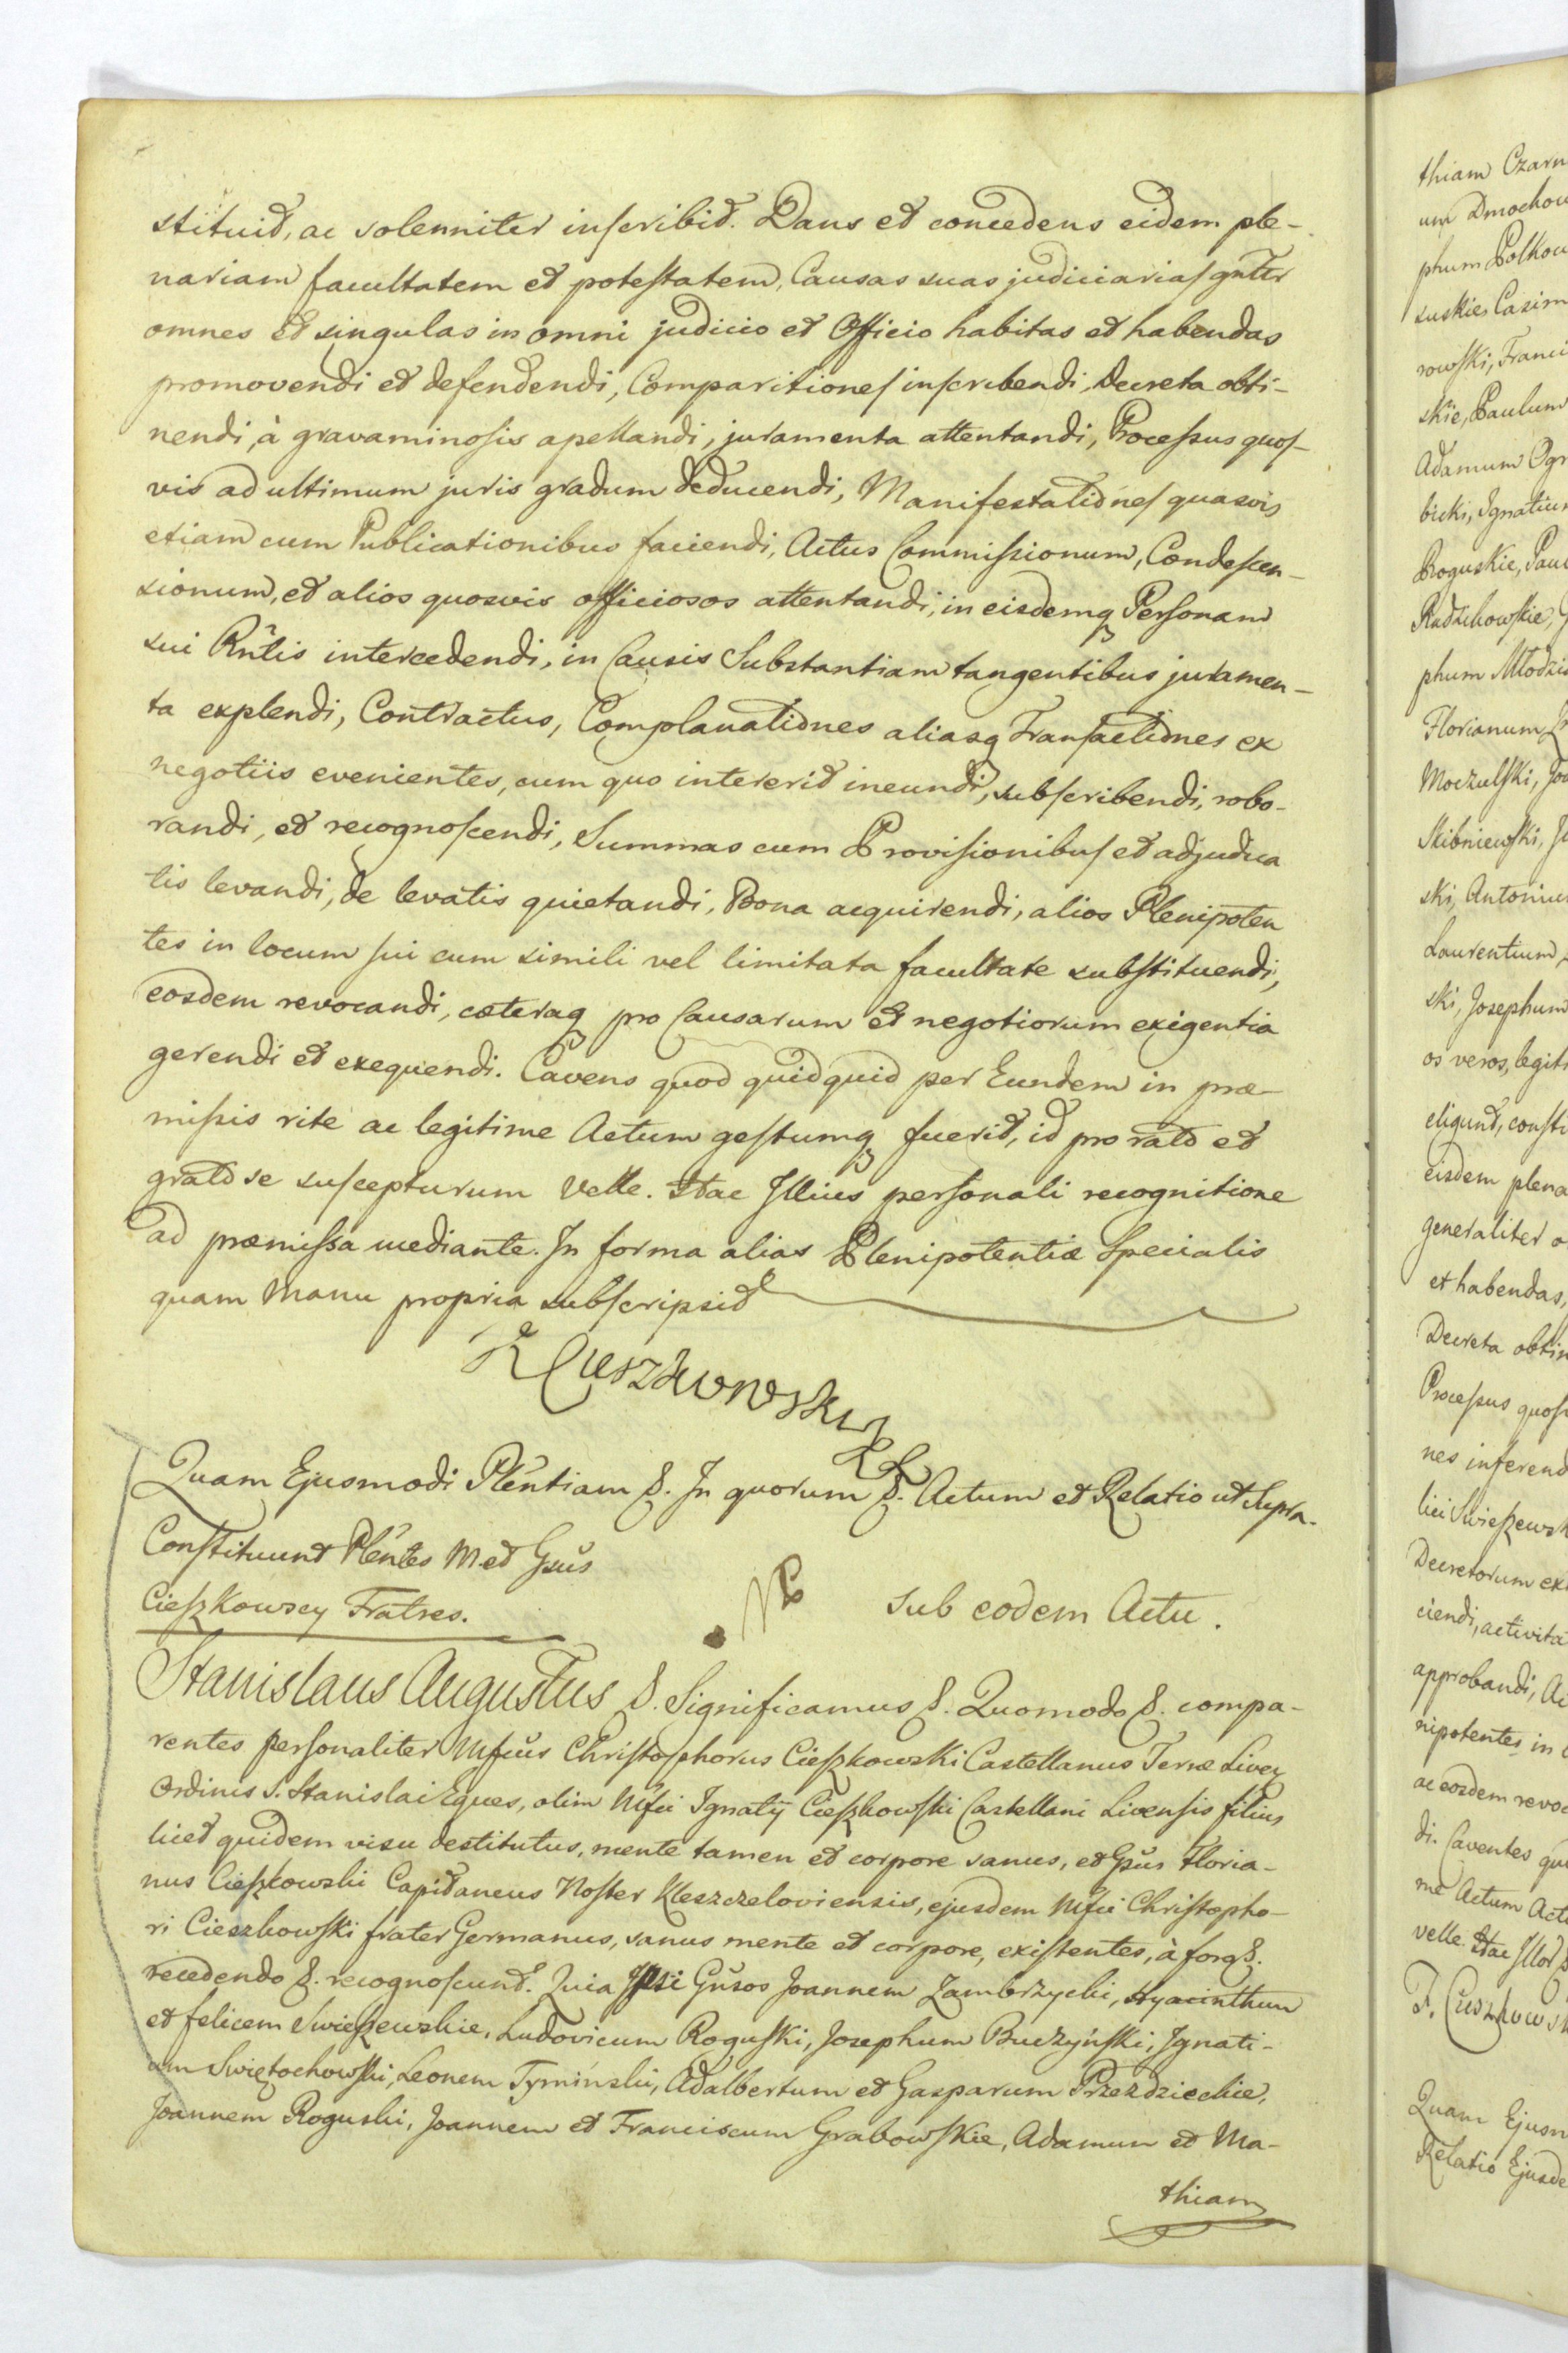 stituit, ac solenniter inscribit. Dans et concedens eidem ple-
nariam facultatem et potestatem, Causas suas judiciarias gnlter
omnes et singulas in omni judicio et Officio habitas et habendas
promovendi et defendendi, Comparitiones inscribendi, Decreta obti-
nendi, à gravaminosis apellandi, juramenta attentandi, Processus quos-
vis ad ultimum juris gradum deducendi, Manifestationes quasvis
etiam cum Publicationibus faciendi, Actus Commissionum, Condescen-
sionum, et alios quosvis officiosos attentandi, in eisdemq Personam
sui Rntis intercedendi, in Causis Substantiam tangentibus juramen-
ta explendi, Contractus, Complanationes aliasq Transactiones ex
negotiis evenientes, cum quo intererit ineundi, subscribendi, robo-
randi, et recognoscendi, Summas cum Provisionibus et adjudica
tis levandi, de levatis quietandi, Bona acquirendi, alios Plenipoten
tes in locum sui cum simili vel limitata facultate substituendi,
eosdem revocandi, cæteraq pro Causarum et negotiorum exigentia
gerendi et exequendi. Cavens quod quidquid per Eundem in præ-
missis rite ac legitime Actum gestumq fuerit, id pro rato et
grato se suscepturum velle. Hac Illius personali recognitione
ad præmissa mediante. In forma alias Plenipotentiæ Specialis
quam Manu propria subscripsit
K Cieszkowski
Quam Ejusmodi Plentiam &. In quorum &. Actum et Relatio ut Supra.
Constituunt Plentes M. et Gsus
Cieszkowscy Fratres.
sub eodem Actu.
Stanislaus Augustus &. Significamus &. Quomodo &. compa-
rentes personaliter Mfcus Christophorus Cieszkowski Castellanus Terræ Livey
Ordinis S. Stanislai Eques, olim Mfci Ignatij Cieszkowski Castellani Livensis filius
licet quidem visu destitutus, mente tamen et corpore sanus, et Gsus Floria-
nus Cieszkowski Capitaneus Noster Kleszczeloviensis, ejusdem Mfci Christopho-
ri Cieszkowski frater Germanus, sanus mente et corpore, existentes, à forq &.
recedendo &. recognoscunt. Quia Ipsi Gnsos Joannem Zambrzycki, Hyacinthum
et felicem Swieszewskie, Ludovicum Roguski, Josephum Buczyński, Ignati-
um Swiętochowski, Leonem Tymiński, Adalbertum et Gasparum Przezdzieckie,
Joannem Roguski, Joannem et Franciscum Grabowskie, Adamum et Ma-
thiam
thiam Czarn
um Dmochow
phum Polkow
suskie, Casim
rowski, Franci
skie, Paulum
Adamum Ogr
bicki, Ignatium
Roguskie, Paul
Radzikowskie,
phum Młodzia
Florianum
Moczulski, Jo
Skibniewski, J
ski, Antonium
Laurentium
ski, Josephum
os veros, legiti
eligunt, consti
eisdem plena
generaliter o
et habendas,
Decreta obtin
Processus quos
nes inferend
lici Swieszewsk
Decretorum ex
ciendi, activita
approbandi, Ac
nipotentes in
ac eosdem revoc
di. Caventes qu
me Actum Act
velle. Hac Illor
F. Cieszkows
Quam Ejusm
Relatio Ejusde